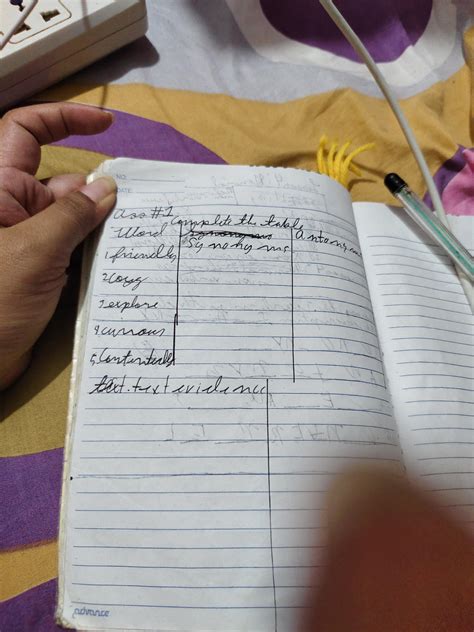 NO.
DATE
Ass #1 Complete the table
Word Synonyms Antonyms
1. friendly
2. Cozy
3. explore
4. curious
5. Contentedly
text evidence
advance